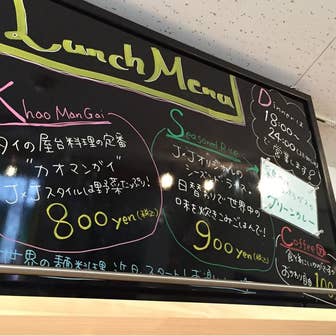 Lunch Menu
Khao Man Gai
タイの屋台料理の定番
"カオマンガイ"
J×Jスタイルは野菜たっぷり!
800yen(税込)
Seasoned Rice
J×Jオリジナルの
シーズンドライス。
日替わりで世界中の
味を炊きこみごはんで!
900yen(税込)
Dinner は
18:00〜
24:00
で営業です!
グリーンカレー
Coffee
おかわり自由 100
世界の麺料理 近日スタート!